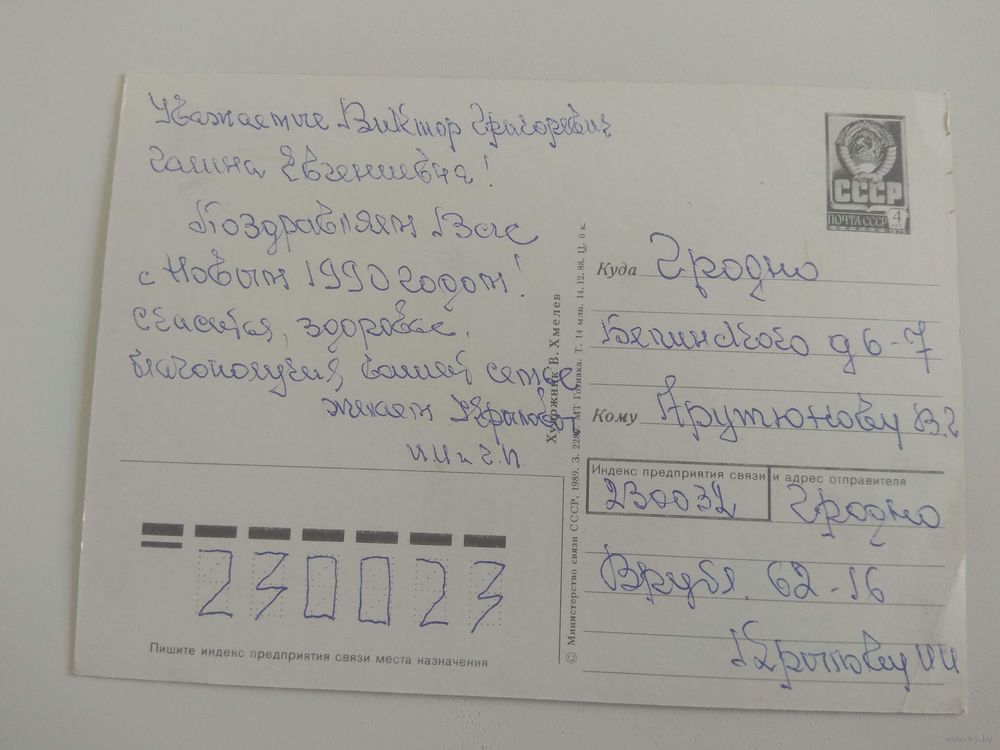 Уважаемые Виктор Григоревич
Галина Евгениевна!
Поздравляем Вас
с Новым 1990 годом!
Счастья, здоровье,
благополучия вашей семье
желаем Крыловы
И.И и Г.П.
СССР
ПОЧТА СССР 4
Куда Гродно
Белинского д 6-7
Кому Арутюнову В.Г
Индекс предприятия связи и адрес отправителя
230032 Гродно
Врубл. 62-16
Крылову ИИ
230023
Пишите индекс предприятия связи места назначения
Художник В. Хмелев
© Министерство связи СССР, 1989. З. 2280. МТ Гознака. Т. 14 млн. 14.12.88. Ц. 6 к.
www.ay.by